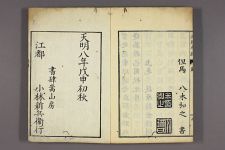 但馬 八木和之書
天明八年戊申初秋
江都
書肆嵩山房
小林新兵衛行